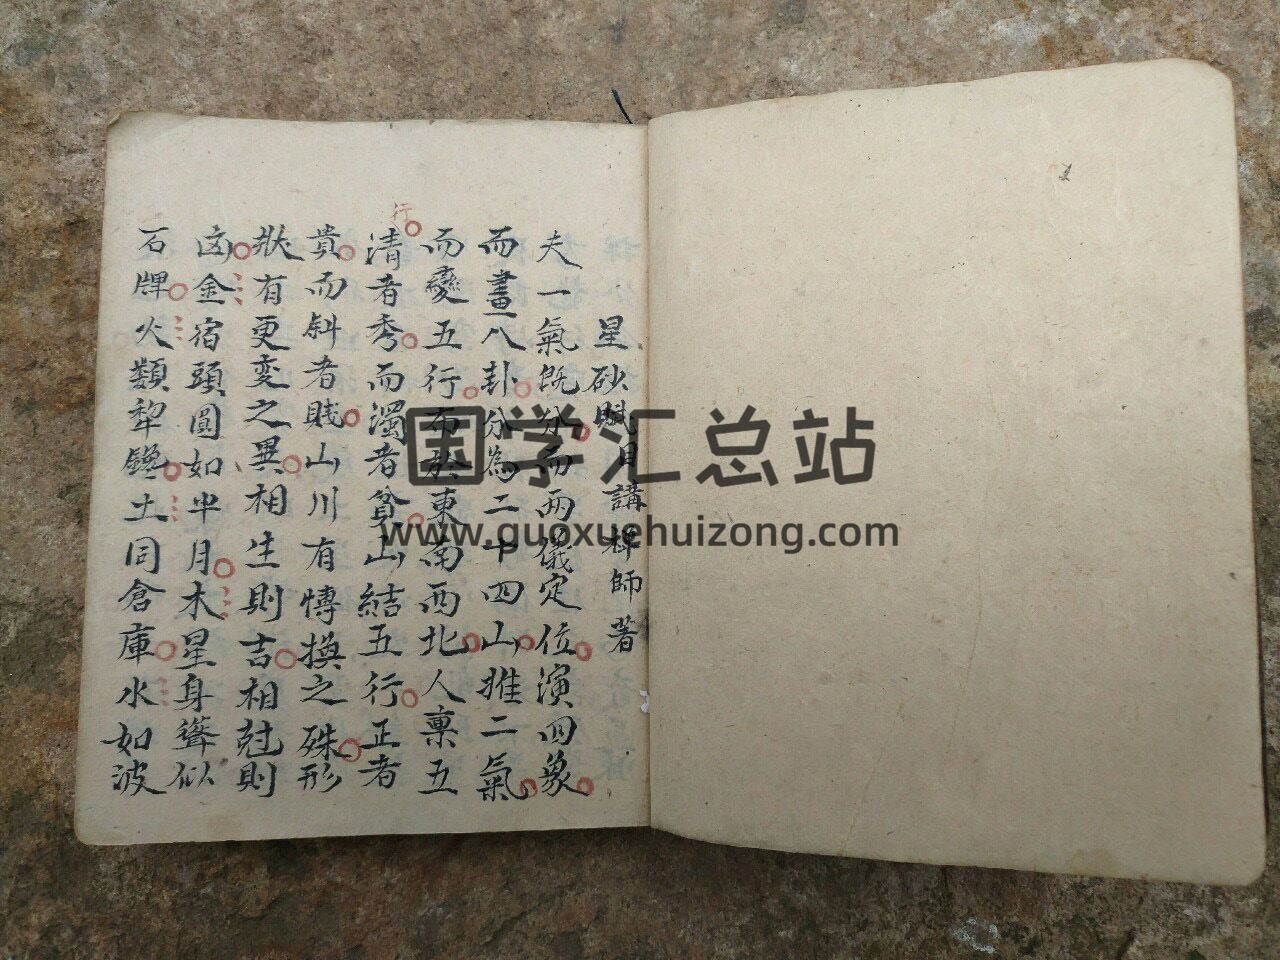 星砂賦目講禅師著
夫一氣既分而兩儀定位演四象
而畫八卦分為二十四山推二氣
而變五行布於東南西北人稟五
行
清者秀而濁者貧山結五行正者
貴而斜者賎山川有慱換之殊形
狀有更变之異相生則吉相尅則
凶金宿頭圓如半月木星身聳似
石牌火類犂鑱土同倉庫水如波
国学汇总站
www.guoxuehuizong.com